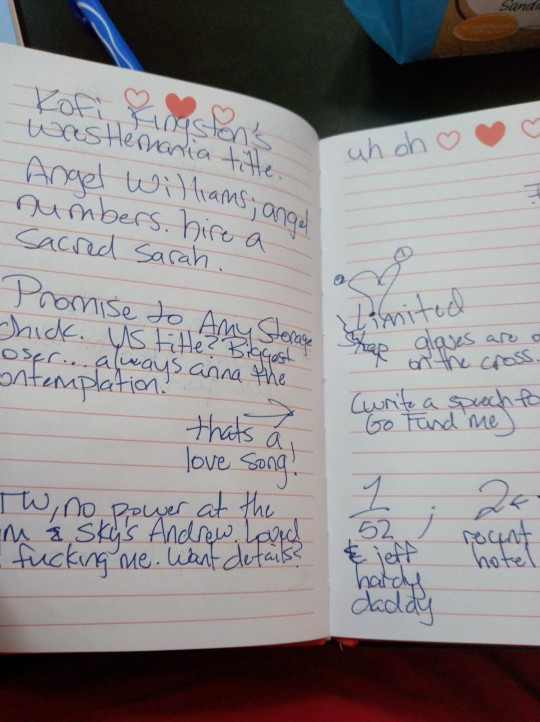 Kofi Kingston's
wrestlemania title.
Angel Williams; angel
numbers. hire a
sacred sarah.
Promise to Amy Storage
chick. US title? Biggest
oser... always anna the
ontemplation!
thats a
love song!
TW, no power at the
m & Sky's Andrew. Loved
fucking me. Want details?
uh oh
Limited
glaves are o
on the cross.
(write a speech fo
Go Fund me)
1
52 ;
& jeff
hardy
daddy
2
recent
hotel